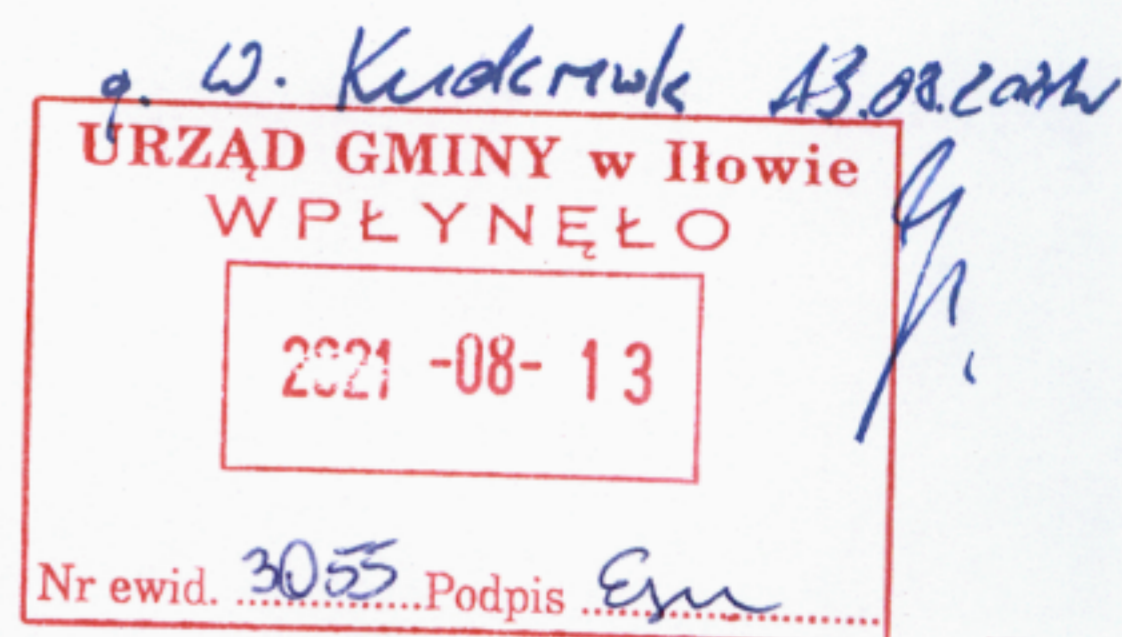 W. 13.08.2021r
URZĄD GMINY w Iłowie
WPŁYNĘŁO
2021 -08- 13
Nr ewid. 3055 Podpis